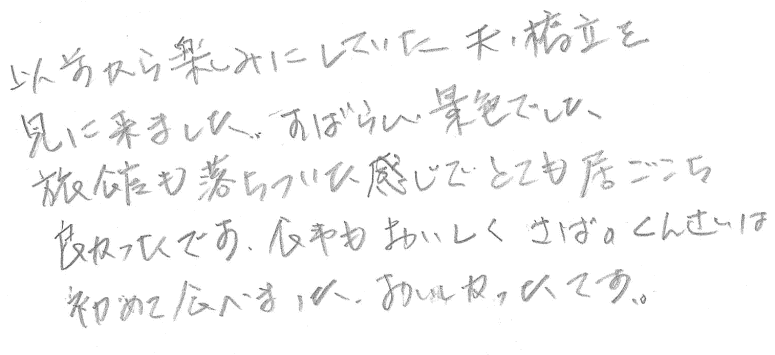 以前から楽しみにしていた天の橋立を
見に来ました。すばらしい景色でした、
旅館も落ちついた感じでとても居ごこち
良かったです、食事もおいしくさばのくんせいは
初めて食べました、おいしかったです。